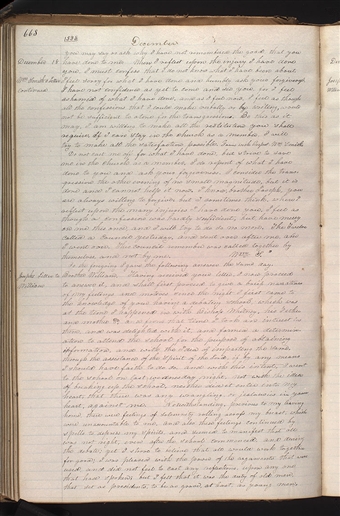 668
1838
December
you may say as why I have not remembered the good that you
December 18
have done to me. When I reflect upon the injury I have done
you, I must confess that I do not know what I have been about.
continued
I feel sorry for what I have done and humbly ask your forgiveness.
I have not confidence as yet to come and see you, for I feel
ashamed of what I have done, and as I feel now, I feel as though
all the confessions that I could make verbally or by writing would
not be sufficient to atone for the transgression. Be this as it
may, I am willing to make all the restitution you shall
require. If I can stay in the church as a member I will
try to make all the satisfaction possible.
me in the church as a member. I do repent of what I have
done to you and ask your forgiveness. I consider the trans-
done and I cannot help it now. I know, brother Joseph, you
are always willing to forgive, but I sometimes think, when I
reflect upon the many injuries I have done you, I feel as
though a confession was hardly sufficient, but have mercy
on me this once, and I will try to do so no more. The Twelve
called a Council yesterday, and sent over after me and
I went over. This council remember was called together by
themselves and not by me.
To the foregoing I gave the following answer the same day.
Joseph's Letter to
Brother William. Having received your letter, I now proceed
Williams
to answer it, and shall first proceed to give a brief narration
of my feelings and motives since the night I first came to
the knowledge of your having a debating school, which was
at the time I happened in with
and from that time I took an interest in
them, and was delighted with it, and formed a determin-
ation to attend the school for the purpose of obtaining
information, and with the idea of imparting the same
through the assistance of the Spirit of the Lord, if by any means
I should have faith to do so. And with this intent, I went
to the school on last Wednesday night, not with the idea
of breaking up the school, neither did it enter into my
heart that there was any wranglings or jealousies in your
heart, against me. Notwithstanding, previous to my leaving
home, there were feelings of solemnity rolling across my breast which
were unaccountable to me, and also these feelings continued by
spells to depress my spirits and seemed to manifest that all
was not right, even after the school commenced, and during
the debate, yet I strove to believe that all would work together
for good. I was pleased with the power of the arguments that were
used, and did not feel to cast any reflections upon any one
that had spoken; but I felt that it was the duty of old men
that sat as presidents to be as grave, at least, as young men,